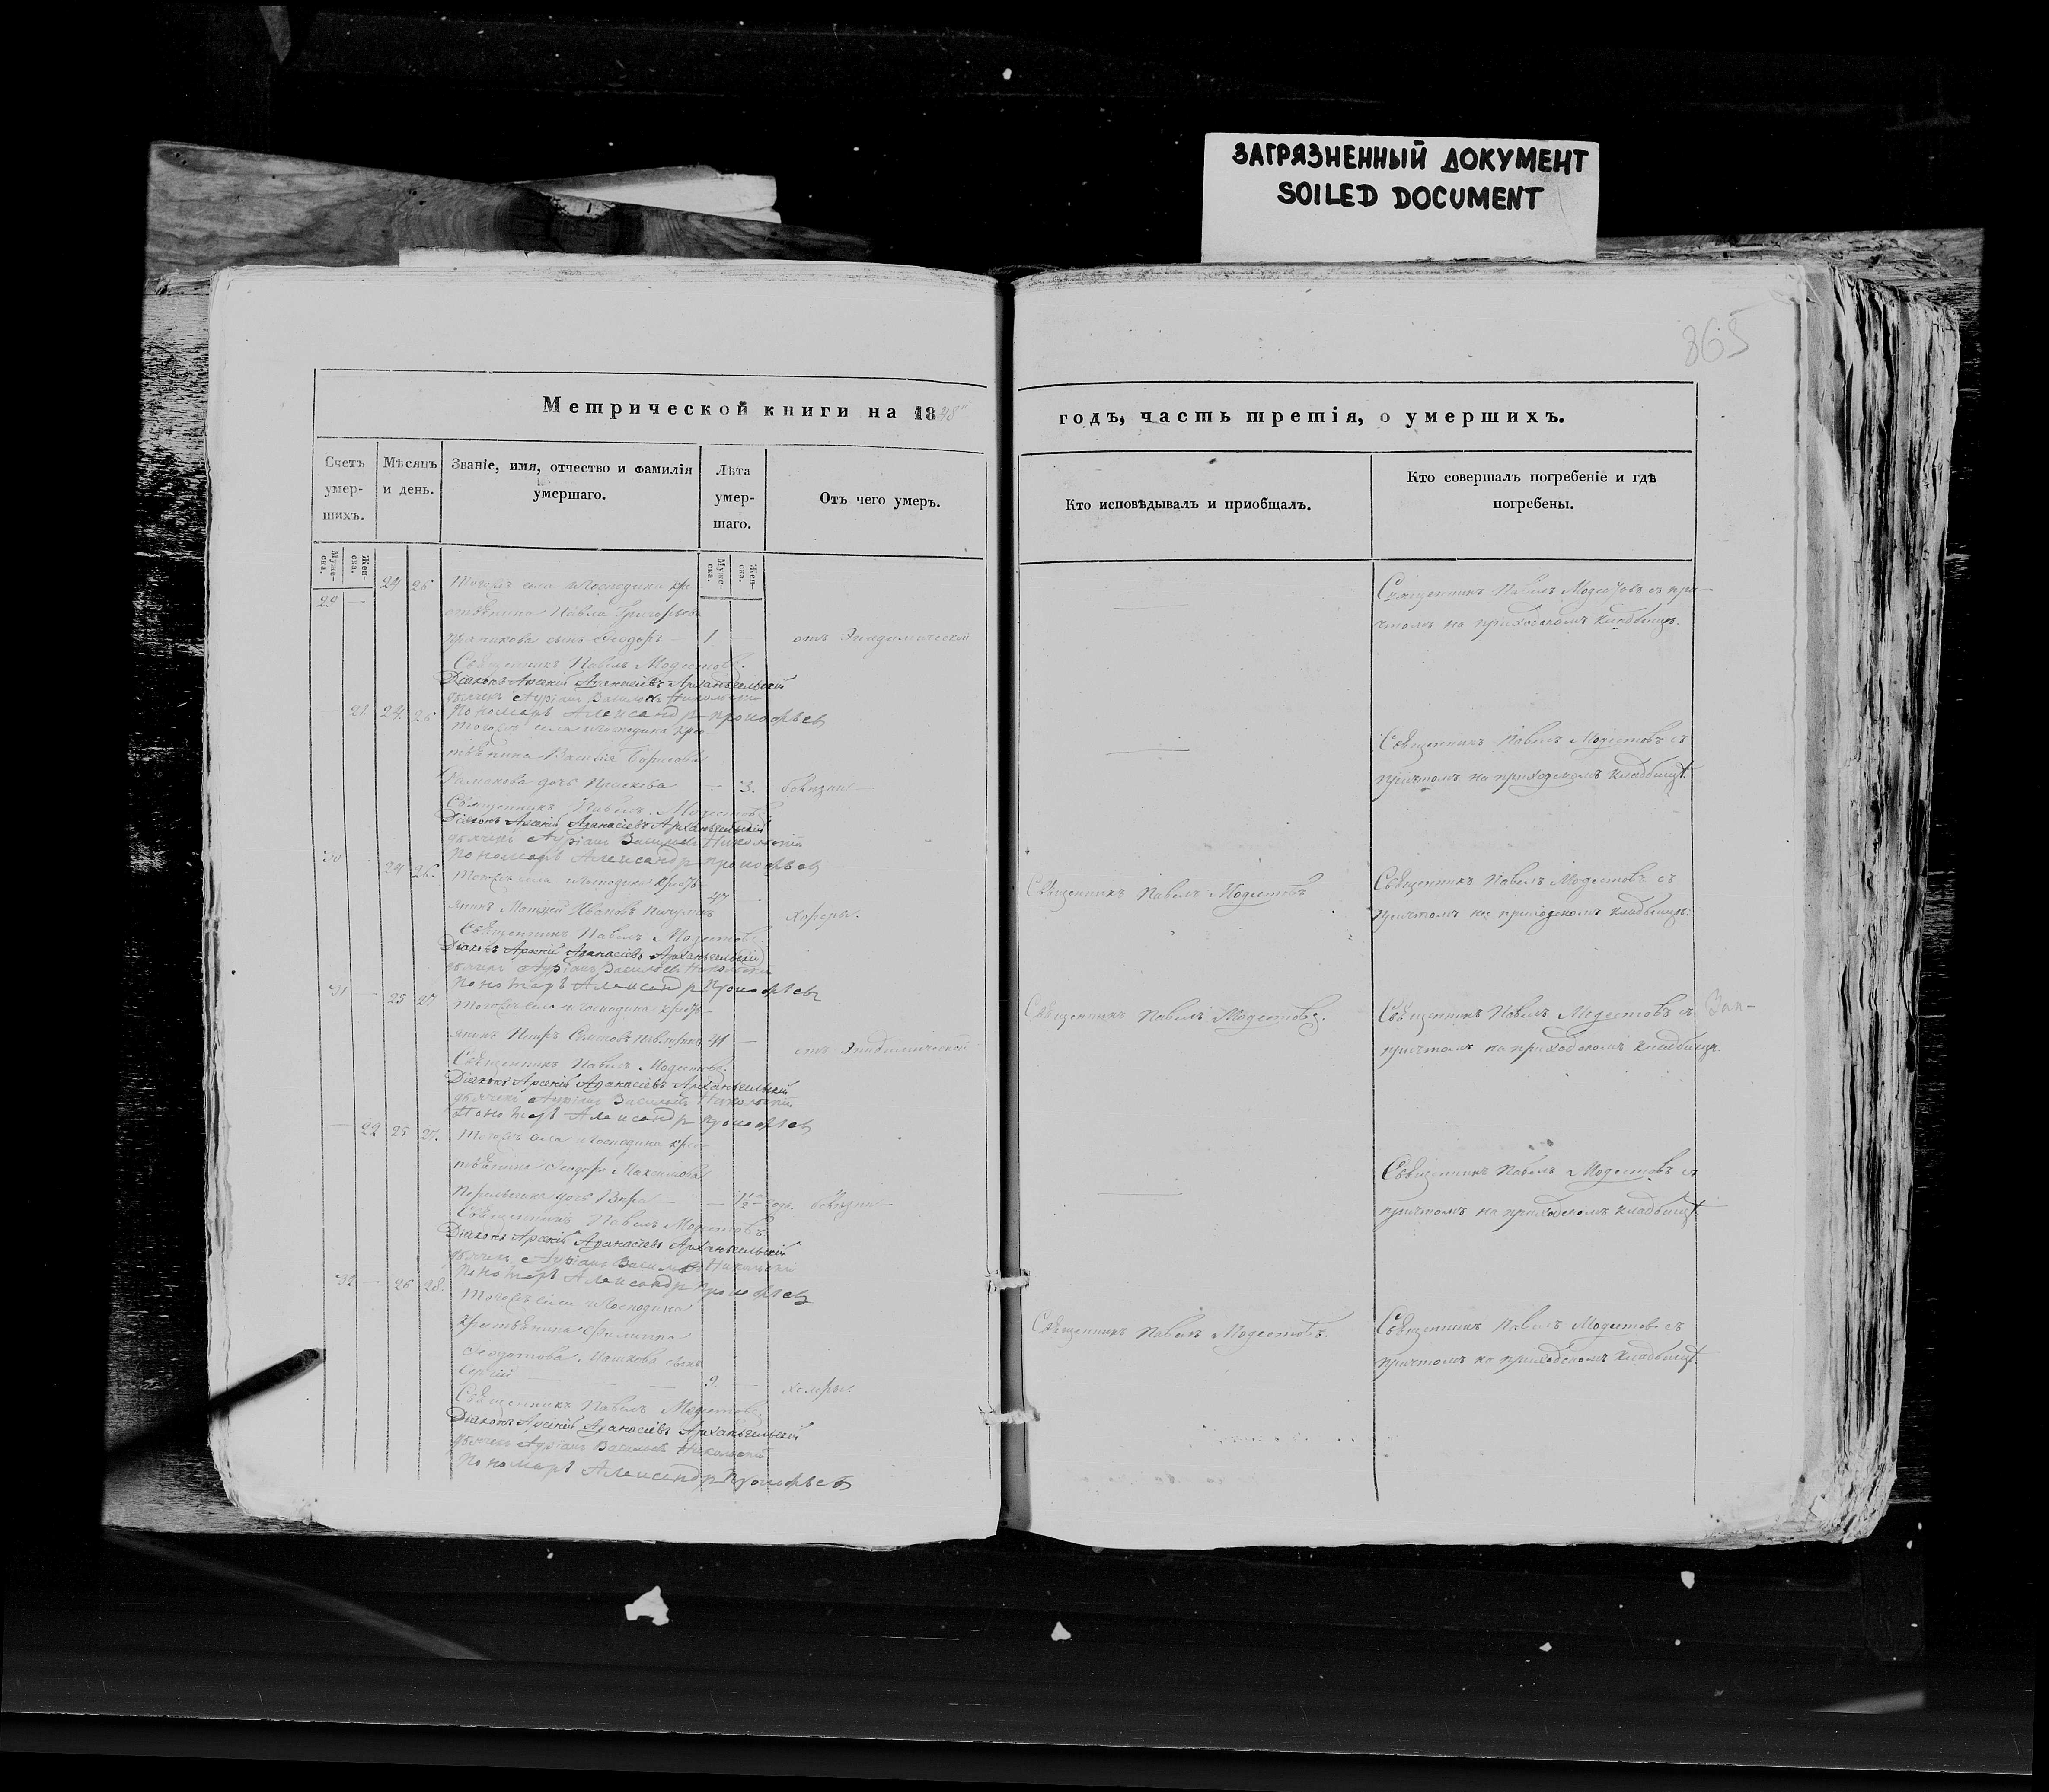 ЗАГРЯЗНЕННЫЙ ДОКУМЕНТ
SOILED DOCUMENT
865
Метрической книги на 1848
годъ, часть третія, о умершихъ.
Счетъ умер-шихъ.
Мѣсяцъ и день.
Званіе, имя, отчество и фамилія умершаго.
Лѣта умер-шаго.
Отъ чего умеръ.
Кто исповѣдывалъ и приобщалъ.
Кто совершалъ погребеніе и гдѣ погребены.
Муже-ска.
Жен-ска.
Муже-ска.
Жен-ска.
29 — 24 26 села господина кре
стьянина Павла Григорьева
сынъ Ѳеодоръ 1 — отъ Эпидемической
Священникъ Павелъ Модестовъ съ при
чтомъ на приходскомъ кладбищѣ.
Священникъ Павелъ Модестовъ.
Діаконъ Арсеній Аѳанасіевъ Архангельскій
дьячекъ Андріанъ Васильевъ Никольскій
Пономарь Александръ Прокофьев
— 21. 24. 26 села господина крес
тьянина Василія Борисова
дочь Праскева — 3. болѣзни —
Священникъ Павелъ Модестовъ съ
причтомъ на приходскомъ кладбищѣ.
Священникъ Павелъ Модестовъ
Діаконъ Арсеній Аѳанасіевъ Архангельскій
дьячекъ Андріанъ Васильевъ Никольскій
Пономарь Александръ Прокофьев
30 24 26. села господина кресть
янинъ Матвей Ивановъ 47 — холеры.
Священникъ Павелъ Модестовъ
Священникъ Павелъ Модестовъ съ
причтомъ на приходскомъ кладбищѣ.
Священникъ Павелъ Модестовъ.
Діаконъ Арсеній Аѳанасіевъ Архангельскій
дьячекъ Андріанъ Васильевъ Никольскій
Пономарь Александръ Прокофьев
31 — 25 27 села господина кресть
янинъ Петръ 41 — отъ Эпидемической
Священникъ Павелъ Модестовъ.
Священникъ Павелъ Модестовъ съ
причтомъ на приходскомъ кладбищѣ.
Священникъ Павелъ Модестовъ.
Діаконъ Арсеній Аѳанасіевъ Архангельскій
дьячекъ Андріанъ Васильевъ Никольскій
Пономарь Александръ Прокофьев
— 22 25 27. села господина крес
тьянина Ѳеодора Максимова
дочь Вѣра — 1½ года. болѣзни —
Священникъ Павелъ Модестовъ съ
причтомъ на приходскомъ кладбищѣ
Священникъ Павелъ Модестовъ
Діаконъ Арсеній Аѳанасіевъ Архангельскій
дьячекъ Андріанъ Васильевъ Никольскій
Пономарь Александръ Прокофьев
32 — 26 28. села господина
крестьянина Филиппа
Ѳеодотова Машкова сынъ
Сергій 9. — холеры.
Священникъ Павелъ Модестовъ.
Священникъ Павелъ Модестовъ съ
причтомъ на приходскомъ кладбищѣ.
Священникъ Павелъ Модестовъ.
Діаконъ Арсеній Аѳанасіевъ Архангельскій
дьячекъ Андріанъ Васильевъ Никольскій
Пономарь Александръ Прокофьев